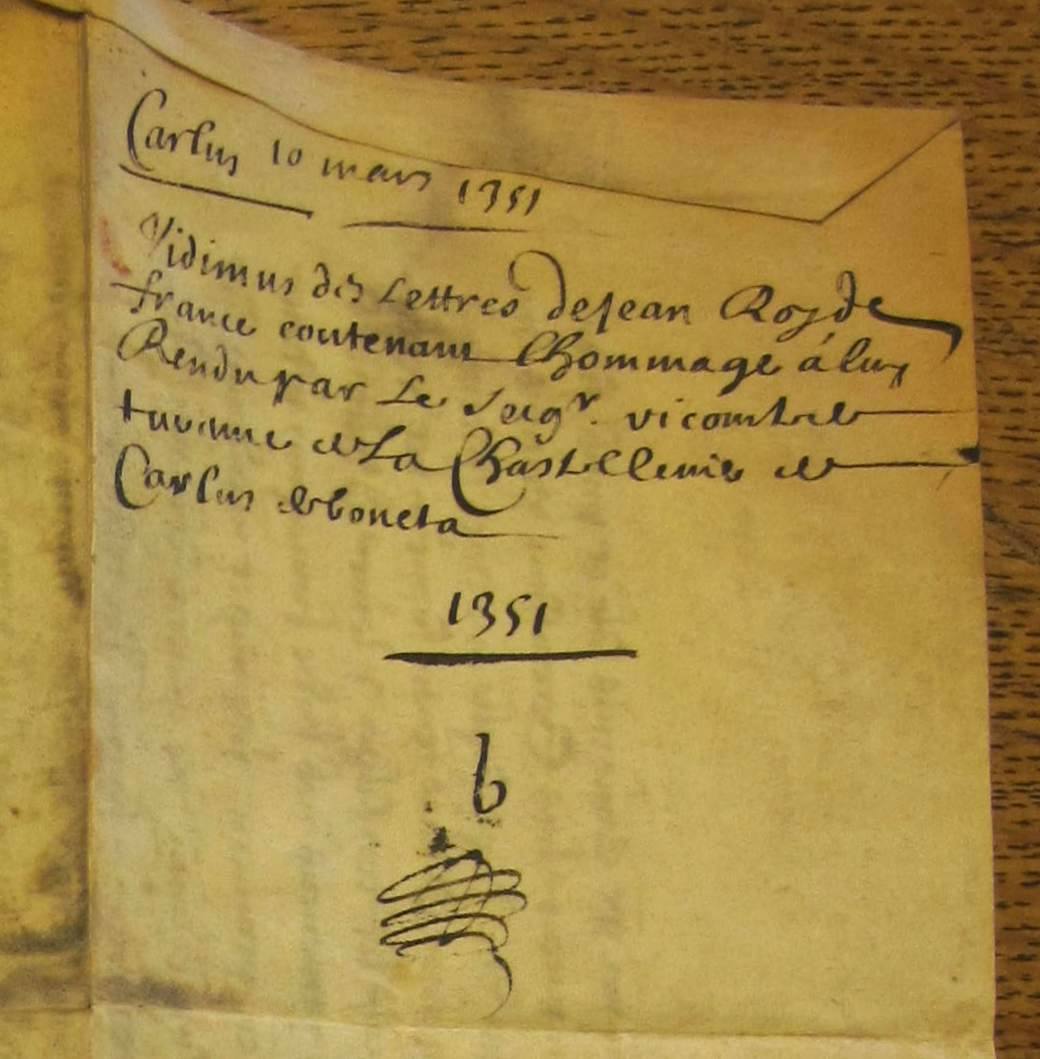 Carlus 10 mars 1351
Vidimus des Lettres de Jean Roy de
france contenant lhommage á luy
Rendu par Le seigr. vicomte de
turenne de La Chastellenie de
Carlus de boneta
1351
b